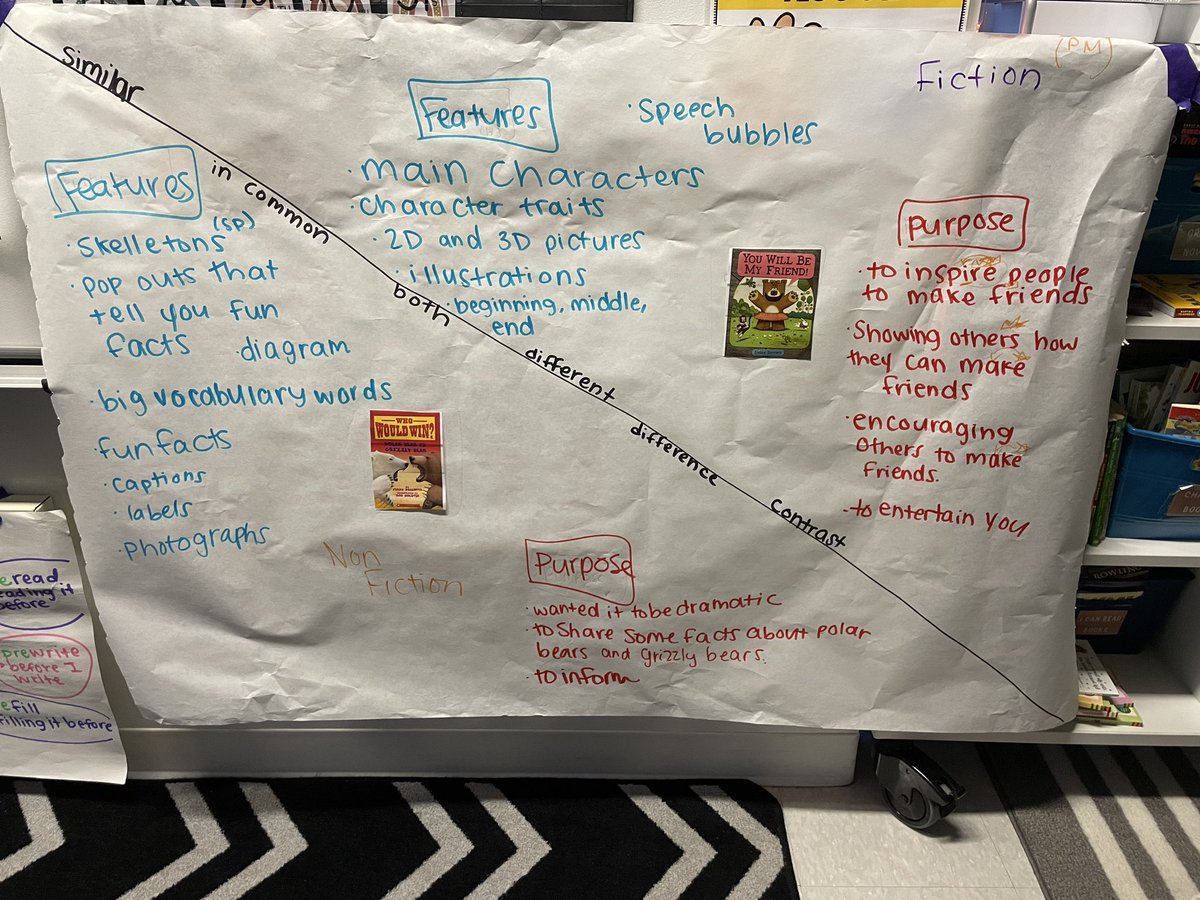 (PM)
Fiction
Similar
in common
both
different
difference
contrast
Features
• speech
bubbles
• main characters
• character traits
• 2D and 3D pictures
• illustrations
• beginning, middle,
end
YOU WILL BE
MY FRIEND!
Purpose
• to inspire people
to make friends
• Showing others how
they can make
friends
• encouraging
others to make
friends.
• to entertain you
Features
(sp)
• skelletons
• pop outs that
tell you fun
facts
diagram
• big vocabulary words
• fun facts
• captions
• labels
• photographs
WHO
WOULD WIN?
POLAR BEAR VS.
GRIZZLY BEAR
Non
Fiction
Purpose
• wanted it to be dramatic
• to share some facts about polar
bears and grizzly bears.
• to inform
eread
eading it
before
prewrite
before I
write
efill
filling it before
ROWLING
I CAN READ
BOOKS